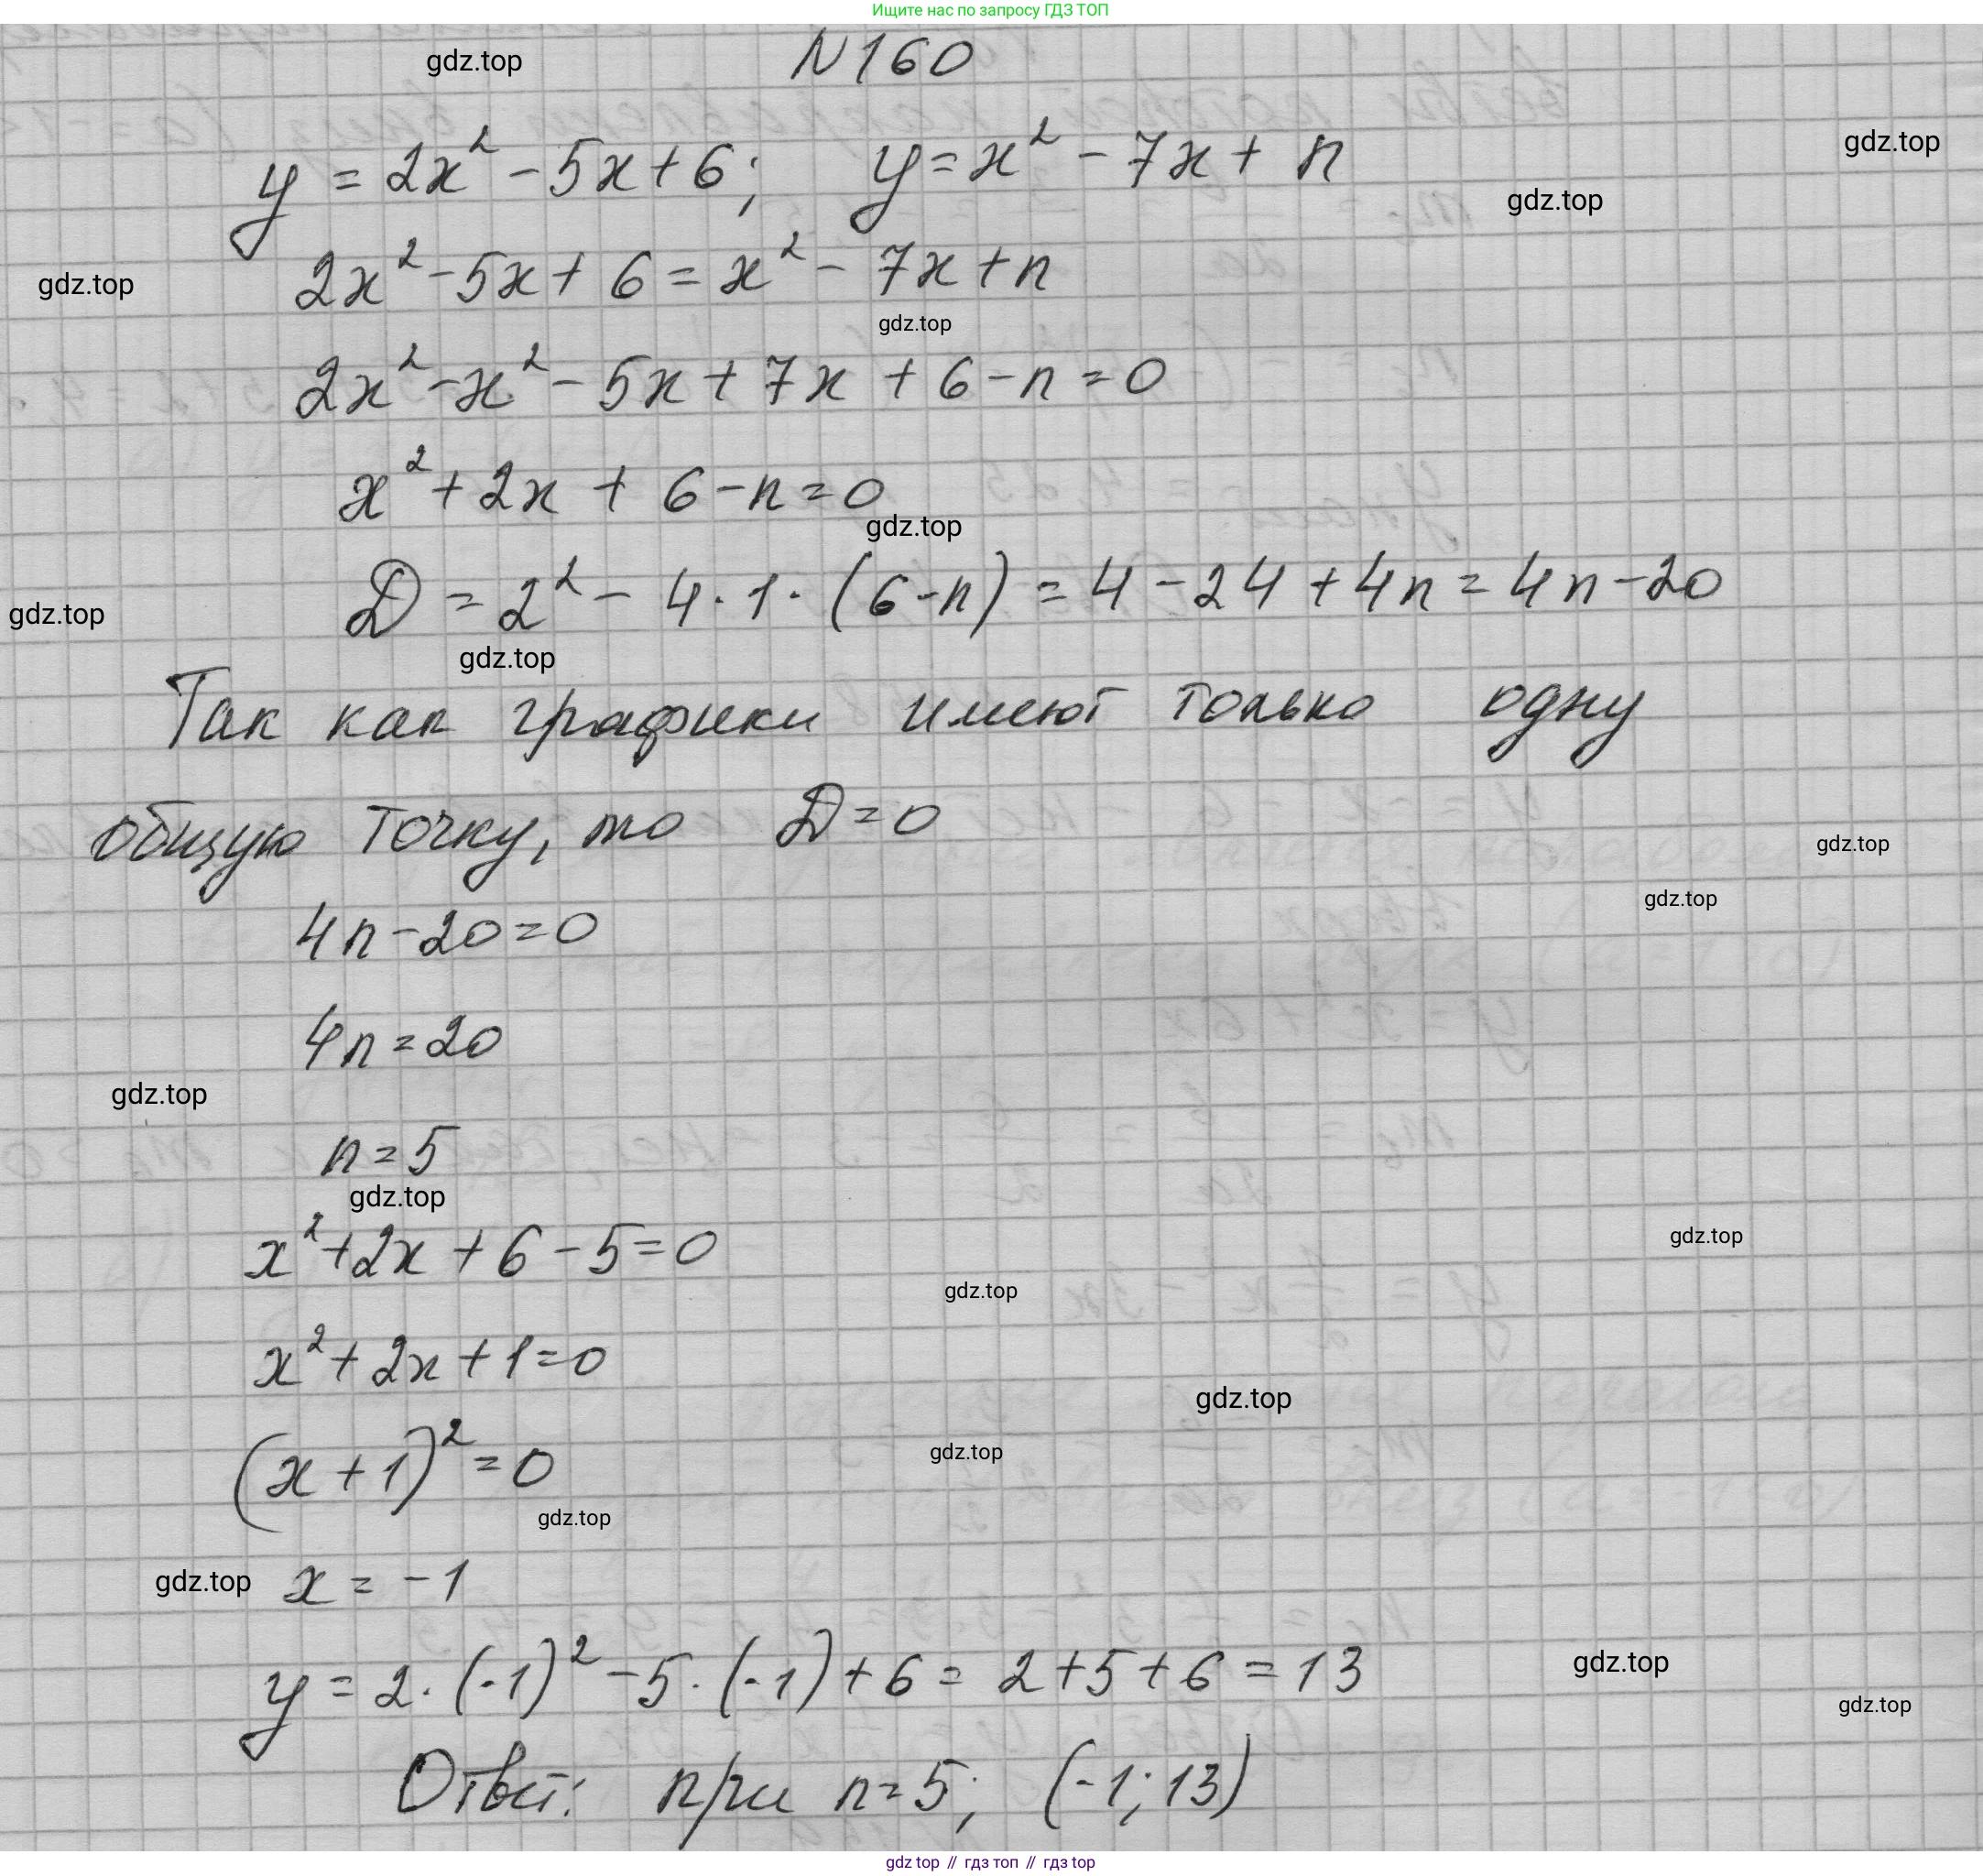 Ищите нас по запросу ГДЗ ТОП
gdz.top
N160
gdz.top
y = 2x² - 5x + 6; y = x² - 7x + n
gdz.top
gdz.top
2x² - 5x + 6 = x² - 7x + n
gdz.top
2x² - x² - 5x + 7x + 6 - n = 0
x² + 2x + 6 - n = 0
gdz.top
D = 2² - 4 · 1 · (6 - n) = 4 - 24 + 4n = 4n - 20
gdz.top
gdz.top
Так как графики имеют только одну
общую точку, то D = 0
gdz.top
gdz.top
4n - 20 = 0
4n = 20
gdz.top
n = 5
gdz.top
x² + 2x + 6 - 5 = 0
gdz.top
gdz.top
x² + 2x + 1 = 0
gdz.top
(x + 1)² = 0
gdz.top
gdz.top
gdz.top
x = -1
y = 2 · (-1)² - 5 · (-1) + 6 = 2 + 5 + 6 = 13
gdz.top
gdz.top
Ответ: при n = 5; (-1; 13)
gdz top // гдз топ // гдз top